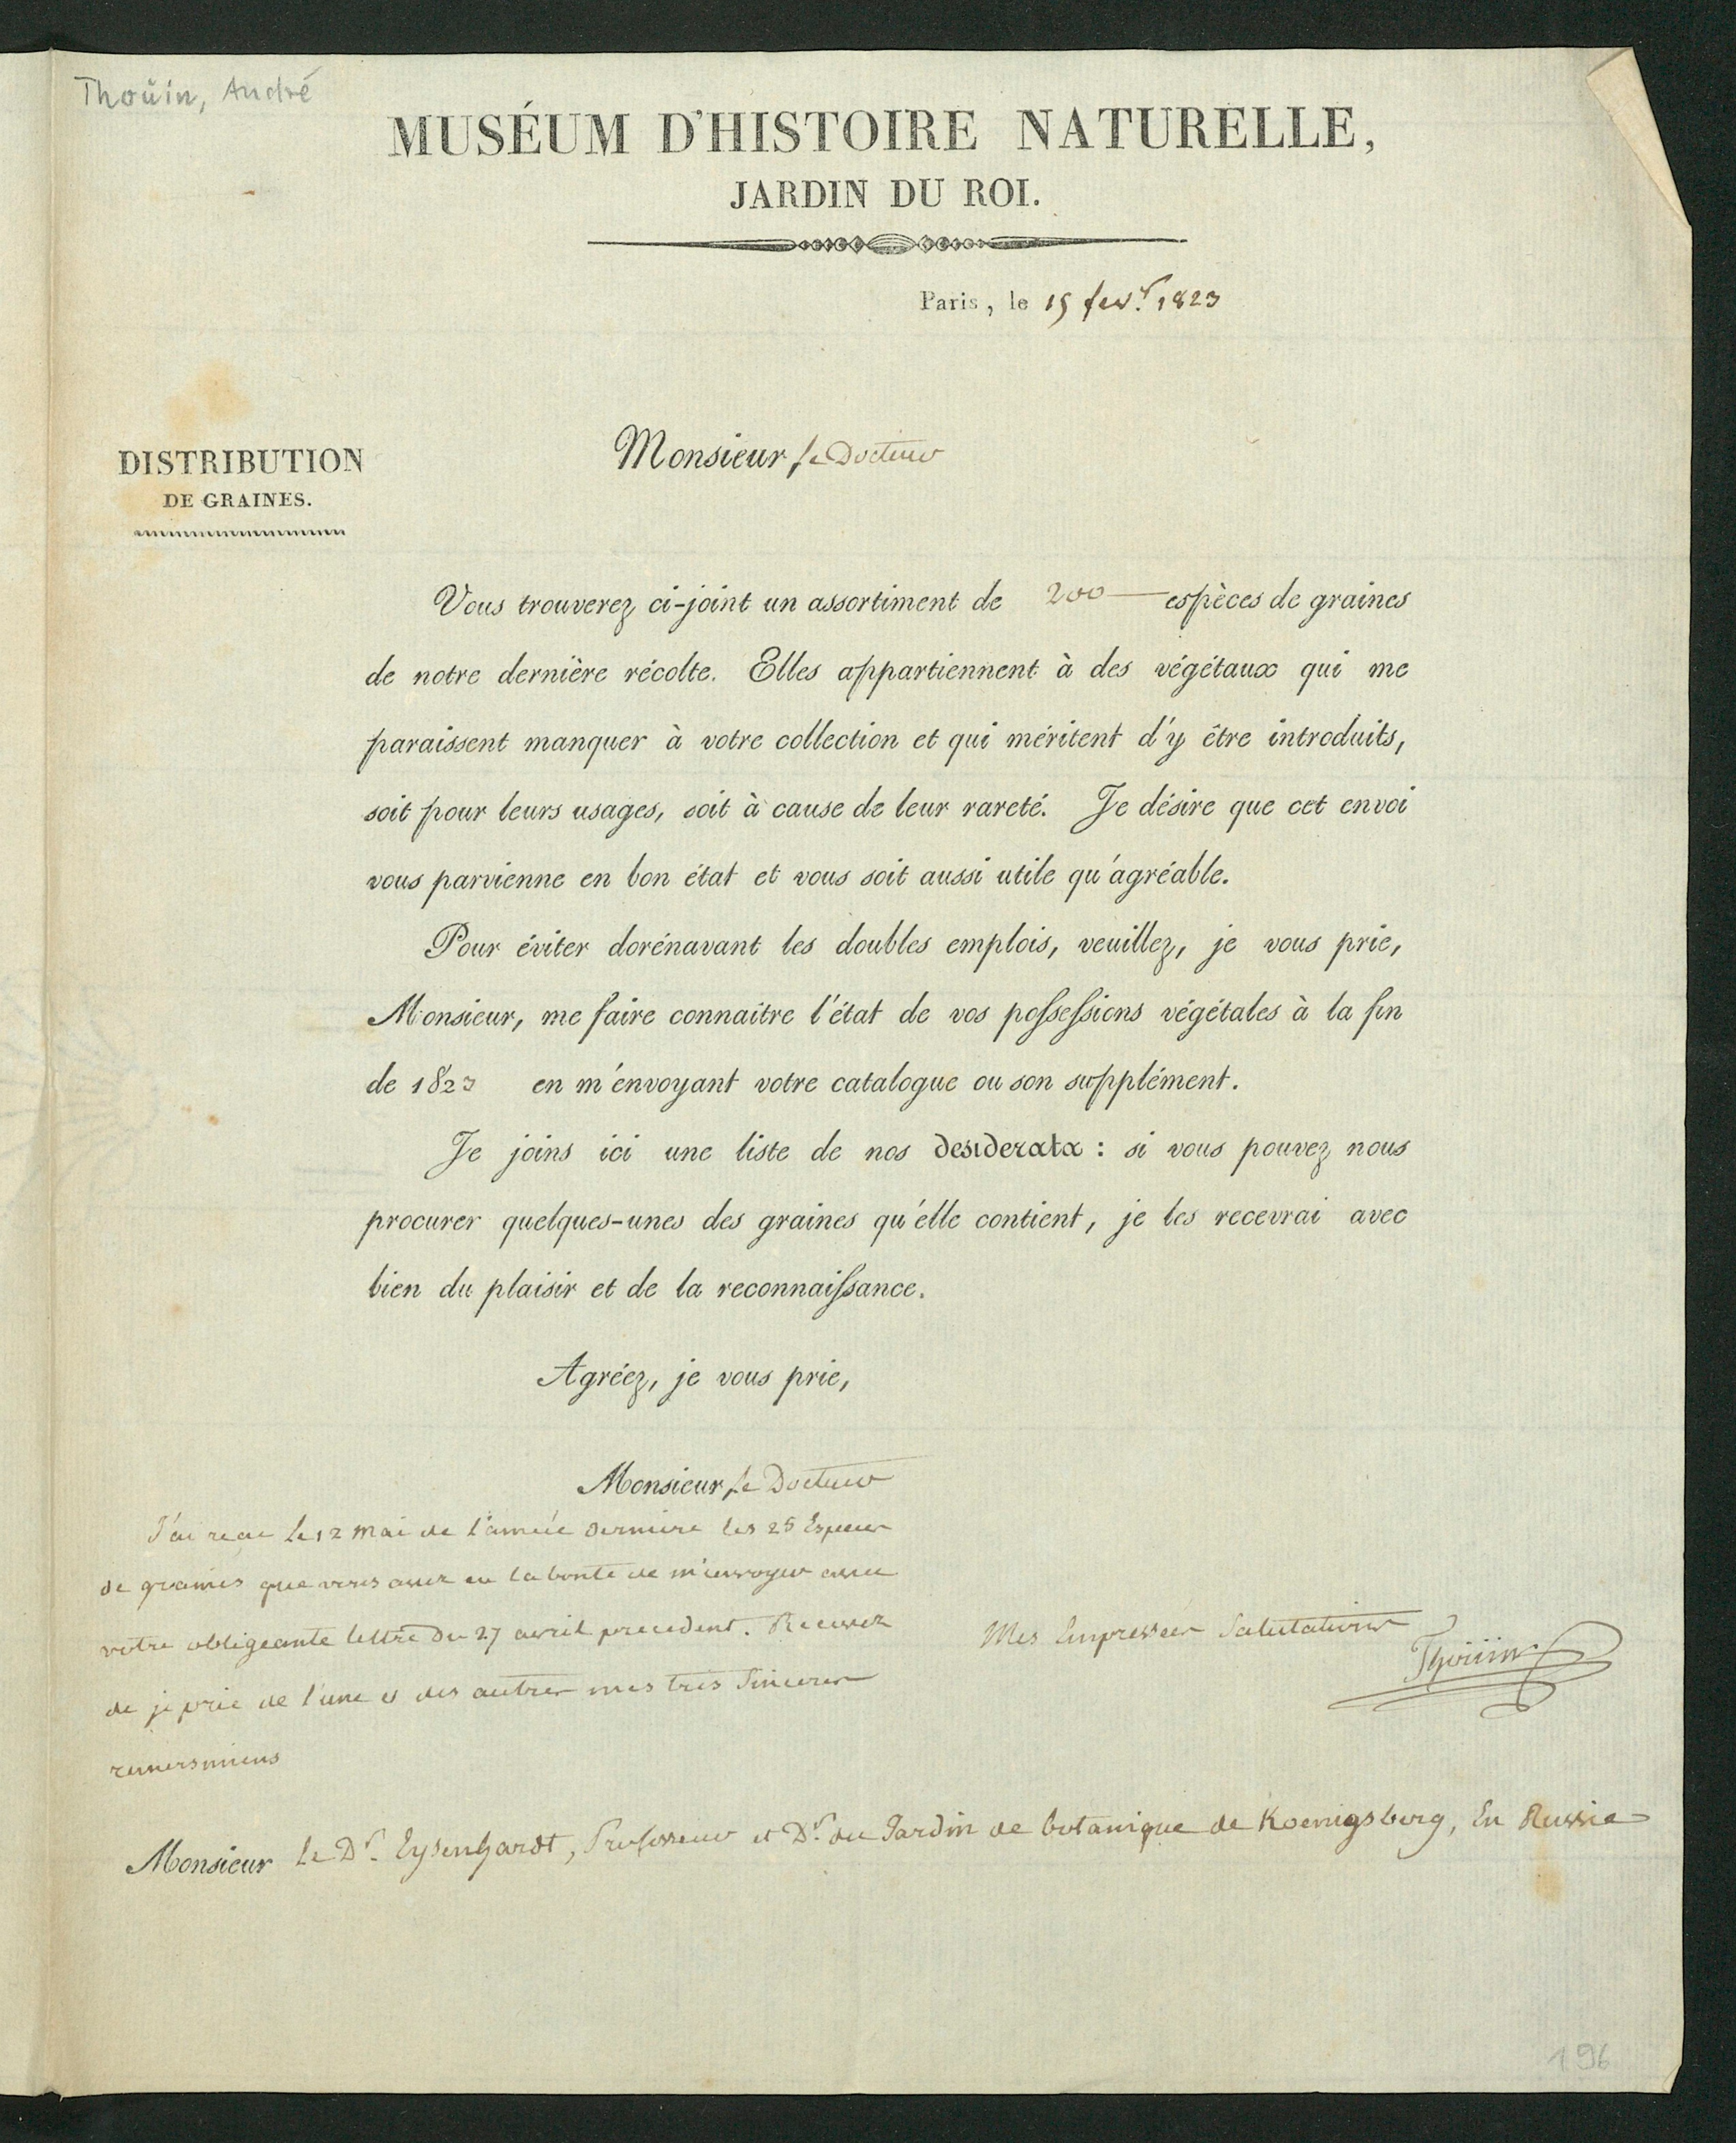 Thoüin, André
MUSÉUM D'HISTOIRE NATURELLE,
JARDIN DU ROI.
Paris, le 15 fevr. 1823
DISTRIBUTION
DE GRAINES.
Monsieur, le Docteur
Vous trouverez ci-joint un assortiment de 200 espèces de graines
de notre dernière récolte. Elles appartiennent à des végétaux qui me
paraissent manquer à votre collection et qui méritent d'y être introduits,
soit pour leurs usages, soit à cause de leur rareté. Je désire que cet envoi
vous parvienne en bon état et vous soit aussi utile qu'agréable.
Pour éviter dorénavant les doubles emplois, veuillez, je vous prie,
Monsieur, me faire connaitre l'état de vos poſseſsions végétales à la fin
de 1823 en m'envoyant votre catalogue ou son supplément.
Je joins ici une liste de nos desiderata : si vous pouvez nous
procurer quelques-unes des graines qu'elle contient, je les recevrai avec
bien du plaisir et de la reconnaiſsance.
Agréez, je vous prie,
Monsieur, le Docteur
J'ai reçu le 12 mai de l'année derniere les 25 Especes
de graines que vous avez eu la bonté de m'envoyer avec
votre obligeante lettre du 27 avril precedent. Recevez
de je prie de l'une et des autres mes tres Sinceres
Mes Empressées Salutations
Thoüin
Monsieur le Dr. Eysenhardt, Professeur et Dr. du Jardin de botanique de Koenigsberg, En Russie
196